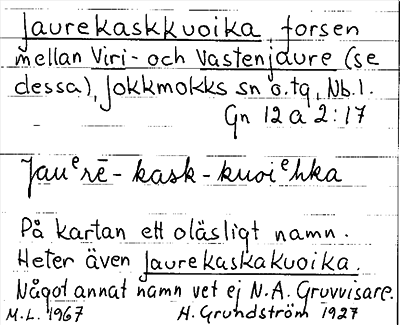 Jaurekaskkuoika, forsen
mellan Viri- och Vastenjaure (se
dessa), Jokkmokks sn o. tg, Nb. l.
Gn 12 a 2:17
Jauᵉrē - kask - kuoiᵉhka
På kartan ett oläsligt namn.
Heter även Jaurekaskakuoika.
Något annat namn vet ej N.A. Gruvvisare.
M.L. 1967 H. Grundström 1927